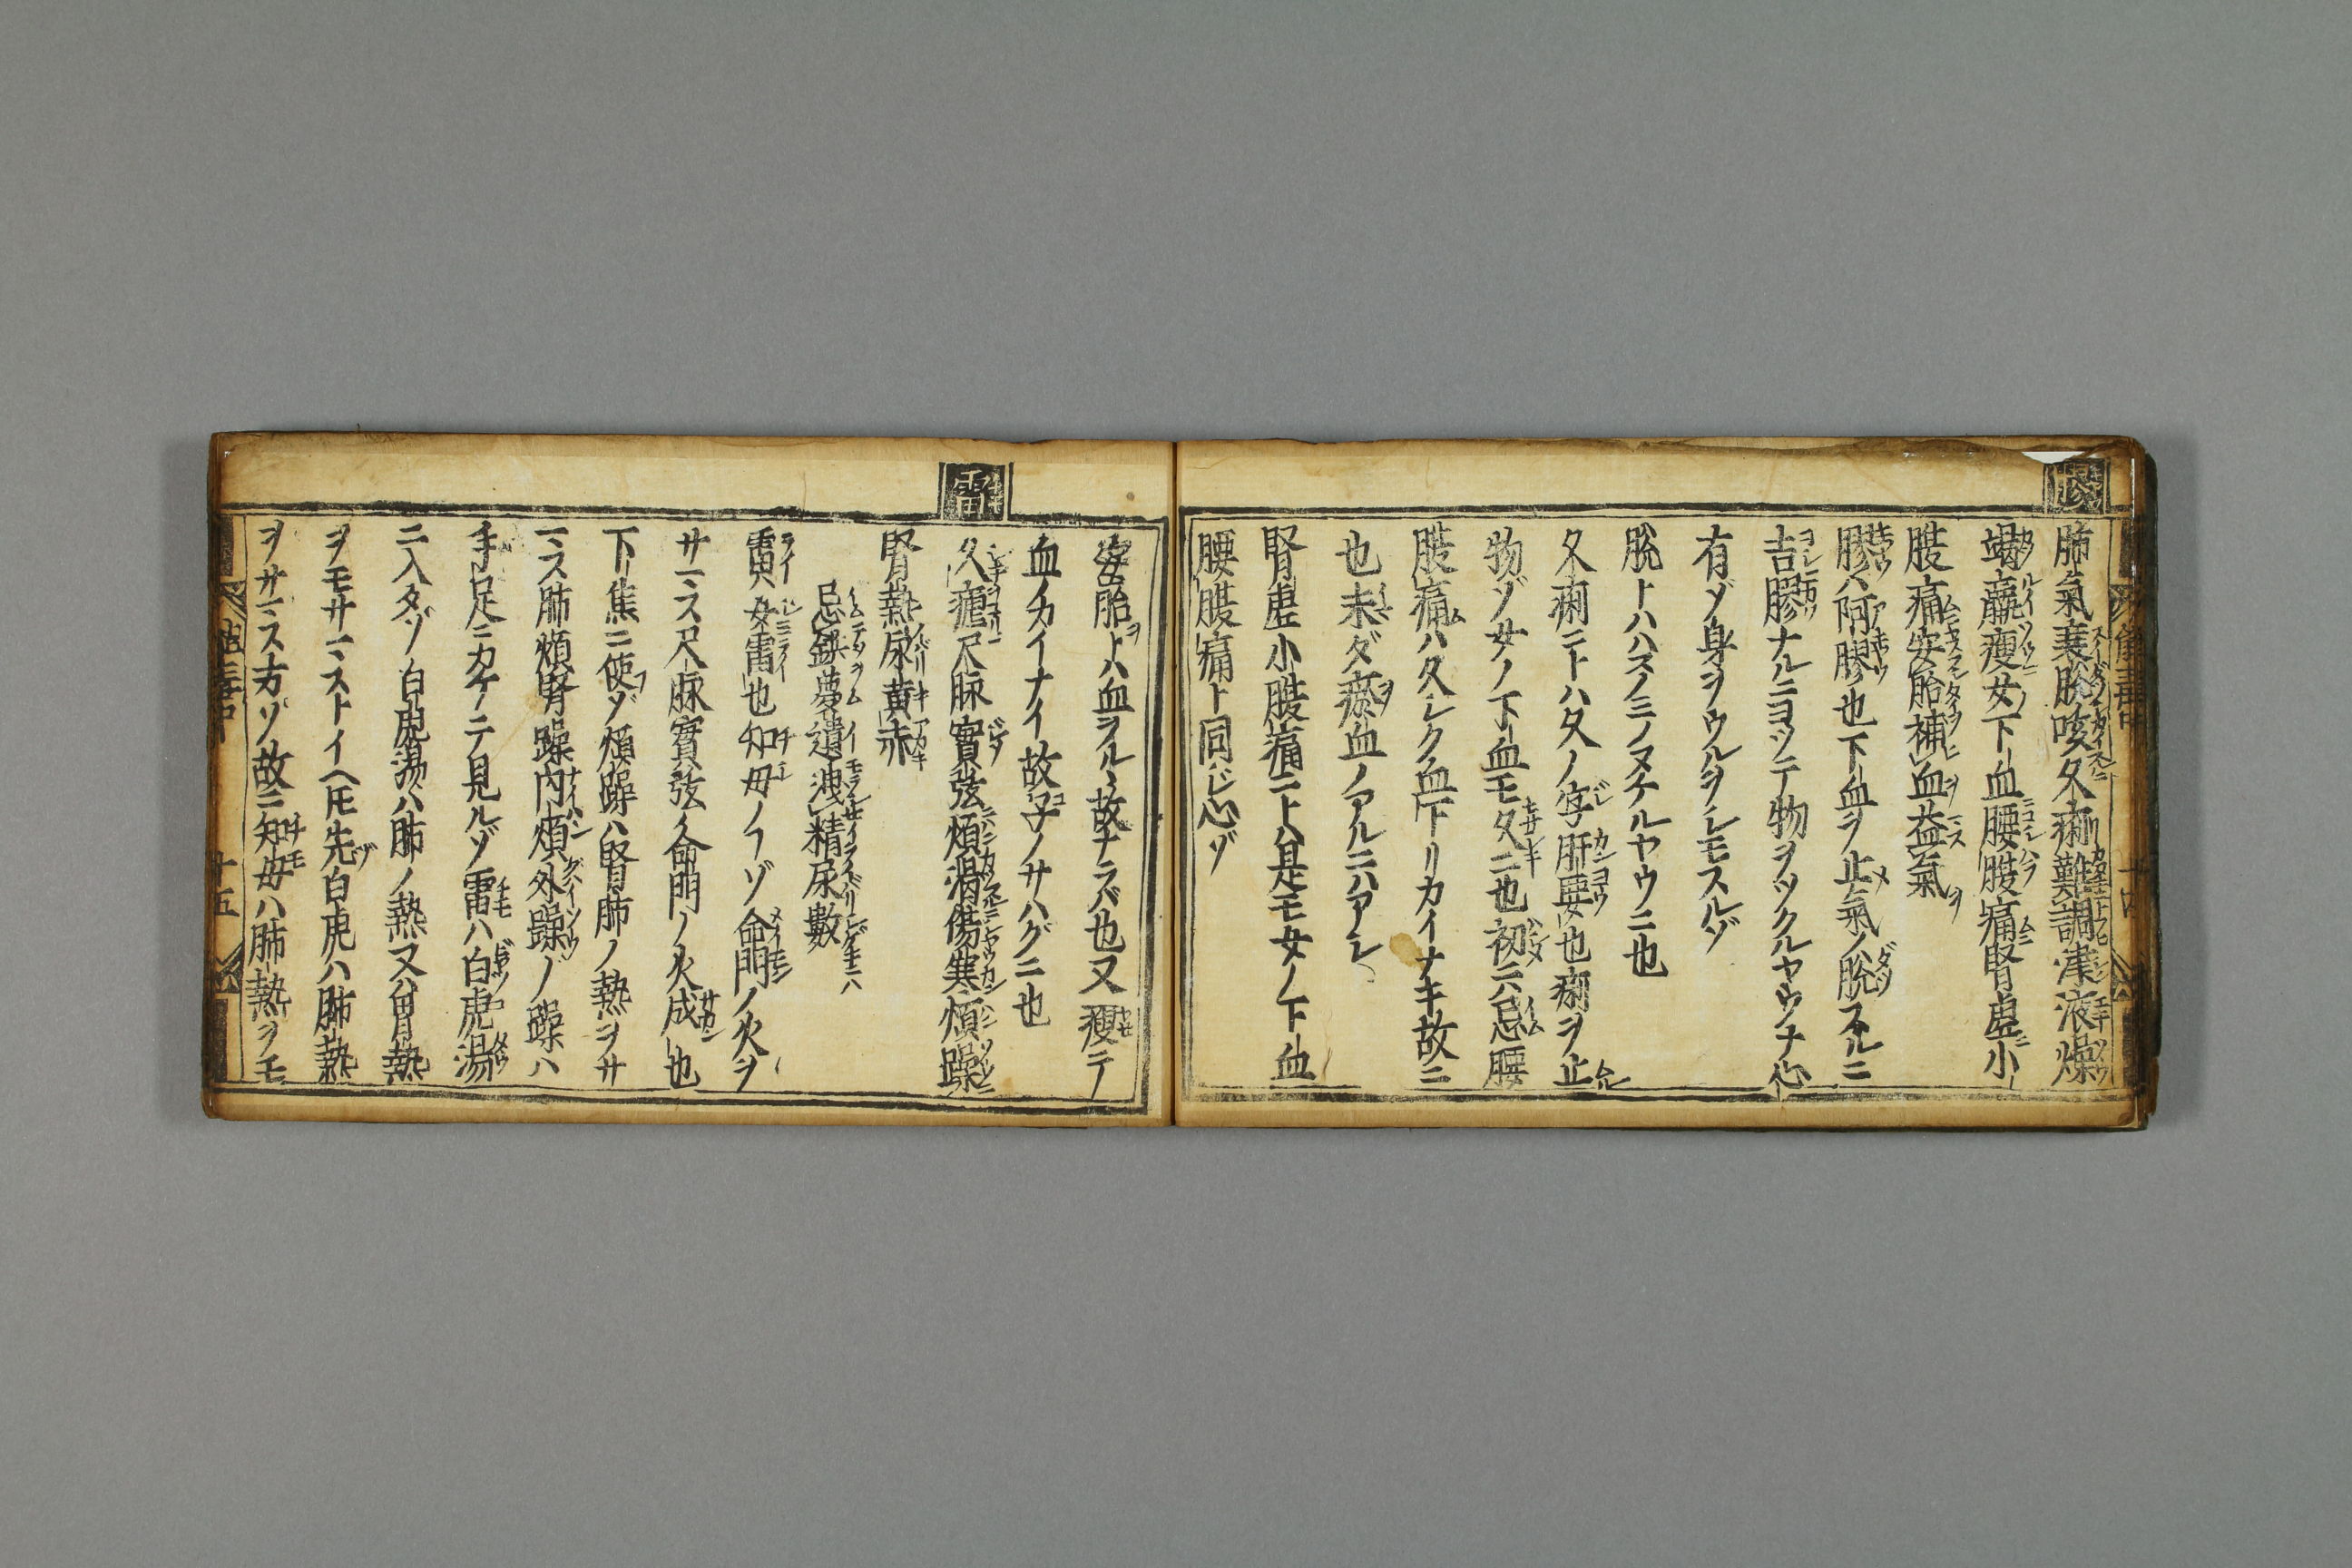 膠
肺氣衰脱咳久痢難調津液燥
渇羸瘦女下血腰腹痛腎虚小
腹痛安胎補血益氣
膠ハ阿膠也下血ヲ止氣ノ脱スルニ
吉膠ナルニヨツテ物ヲツクルヤウナ心
有ゾ身ヲウルヲシモスルゾ
脱トハハズノミノヌケルヤウニ也
久痢ニトハ久ノ字肝要也痢ヲ止
物ゾ女ノ下血モ久ニ也初ニハ忌腰
腹痛ハ久シク血下リカイナキ故ニ
也未ダ瘀血ノアルニハアシ
腎虚小腹痛ニトハ是モ女ノ下血
腰腹痛ト同ジ心ゾ
安胎トハ血ヲルヽ故ナラバ也又瘦テ
血ノカイナイ故子ノサハグニ也
雷
久瘧尺脉實弦煩渇傷寒煩躁
腎熱尿黄赤
忌鉄夢遺洩精尿數
雷ハ女雷也知母ノフゾ命門ノ火ヲ
サマス尺脉實弦ハ命門ノ火成也
下焦ニ使ゾ煩躁ハ腎肺ノ熱ヲサ
マス肺煩腎躁内煩外躁ノ躁ハ
手足ニカケテ見ルゾ雷ハ白虎湯
ニ入タゾ白虎湯ハ肺ノ熱又ハ胃熱
ヲモサマストイヘ𪜈先白虎ハ肺熱
ヲサマス方ゾ故ニ知母ハ肺熱ヲモ
十五